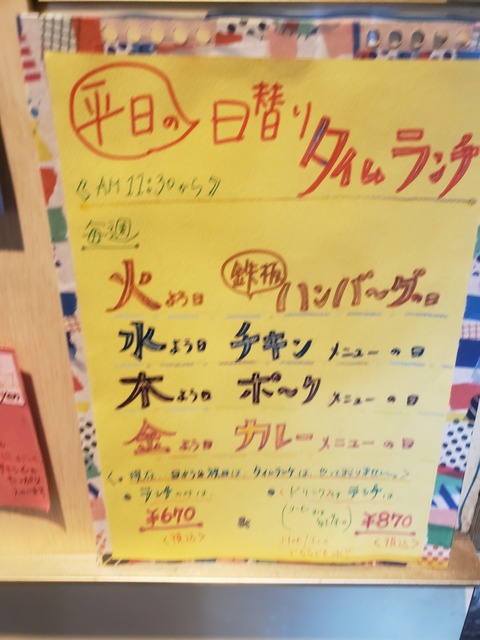 平日の 日替り
タイムランチ
《AM 11:30から》
毎週
火よう日 鉄板ハンバーグの日
水よう日 チキンメニューの日
木よう日 ポークメニューの日
金よう日 カレーメニューの日
タイムランチは、やっておりません。
ランチのみは
ドリンク付ランチは
¥670
<税込>
¥870
<税込>